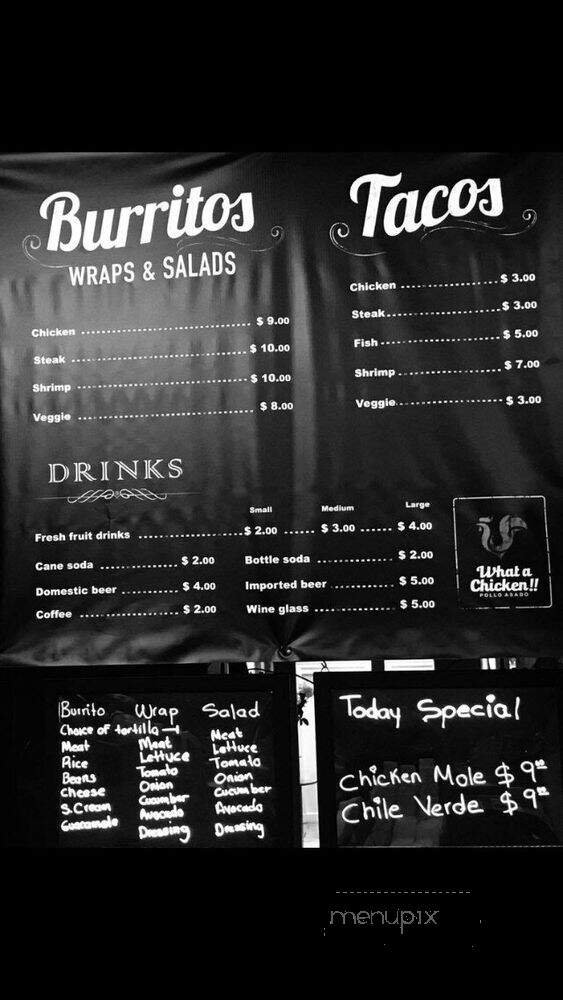 Burritos
WRAPS & SALADS
Chicken $ 9.00
Steak $ 10.00
Shrimp $ 10.00
Veggie $ 8.00
Tacos
Chicken $ 3.00
Steak $ 3.00
Fish $ 5.00
Shrimp $ 7.00
Veggie $ 3.00
DRINKS
Small Medium Large
Fresh fruit drinks $ 2.00 $ 3.00 $ 4.00
Cane soda $ 2.00 Bottle soda $ 2.00
Domestic beer $ 4.00 Imported beer $ 5.00
Coffee $ 2.00 Wine glass $ 5.00
What a
Chicken!!
POLLO ASADO
Burrito
Choice of tortilla
Meat
Rice
Beans
Cheese
S.Cream
Guacamole
Wrap
Meat
Lettuce
Tomato
Onion
Cucumber
Avocado
Dressing
Salad
Meat
Lettuce
Tomato
Onion
Cucumber
Avocado
Dressing
Today Special
Chicken Mole $ 9.00
Chile Verde $ 9.00
menupix